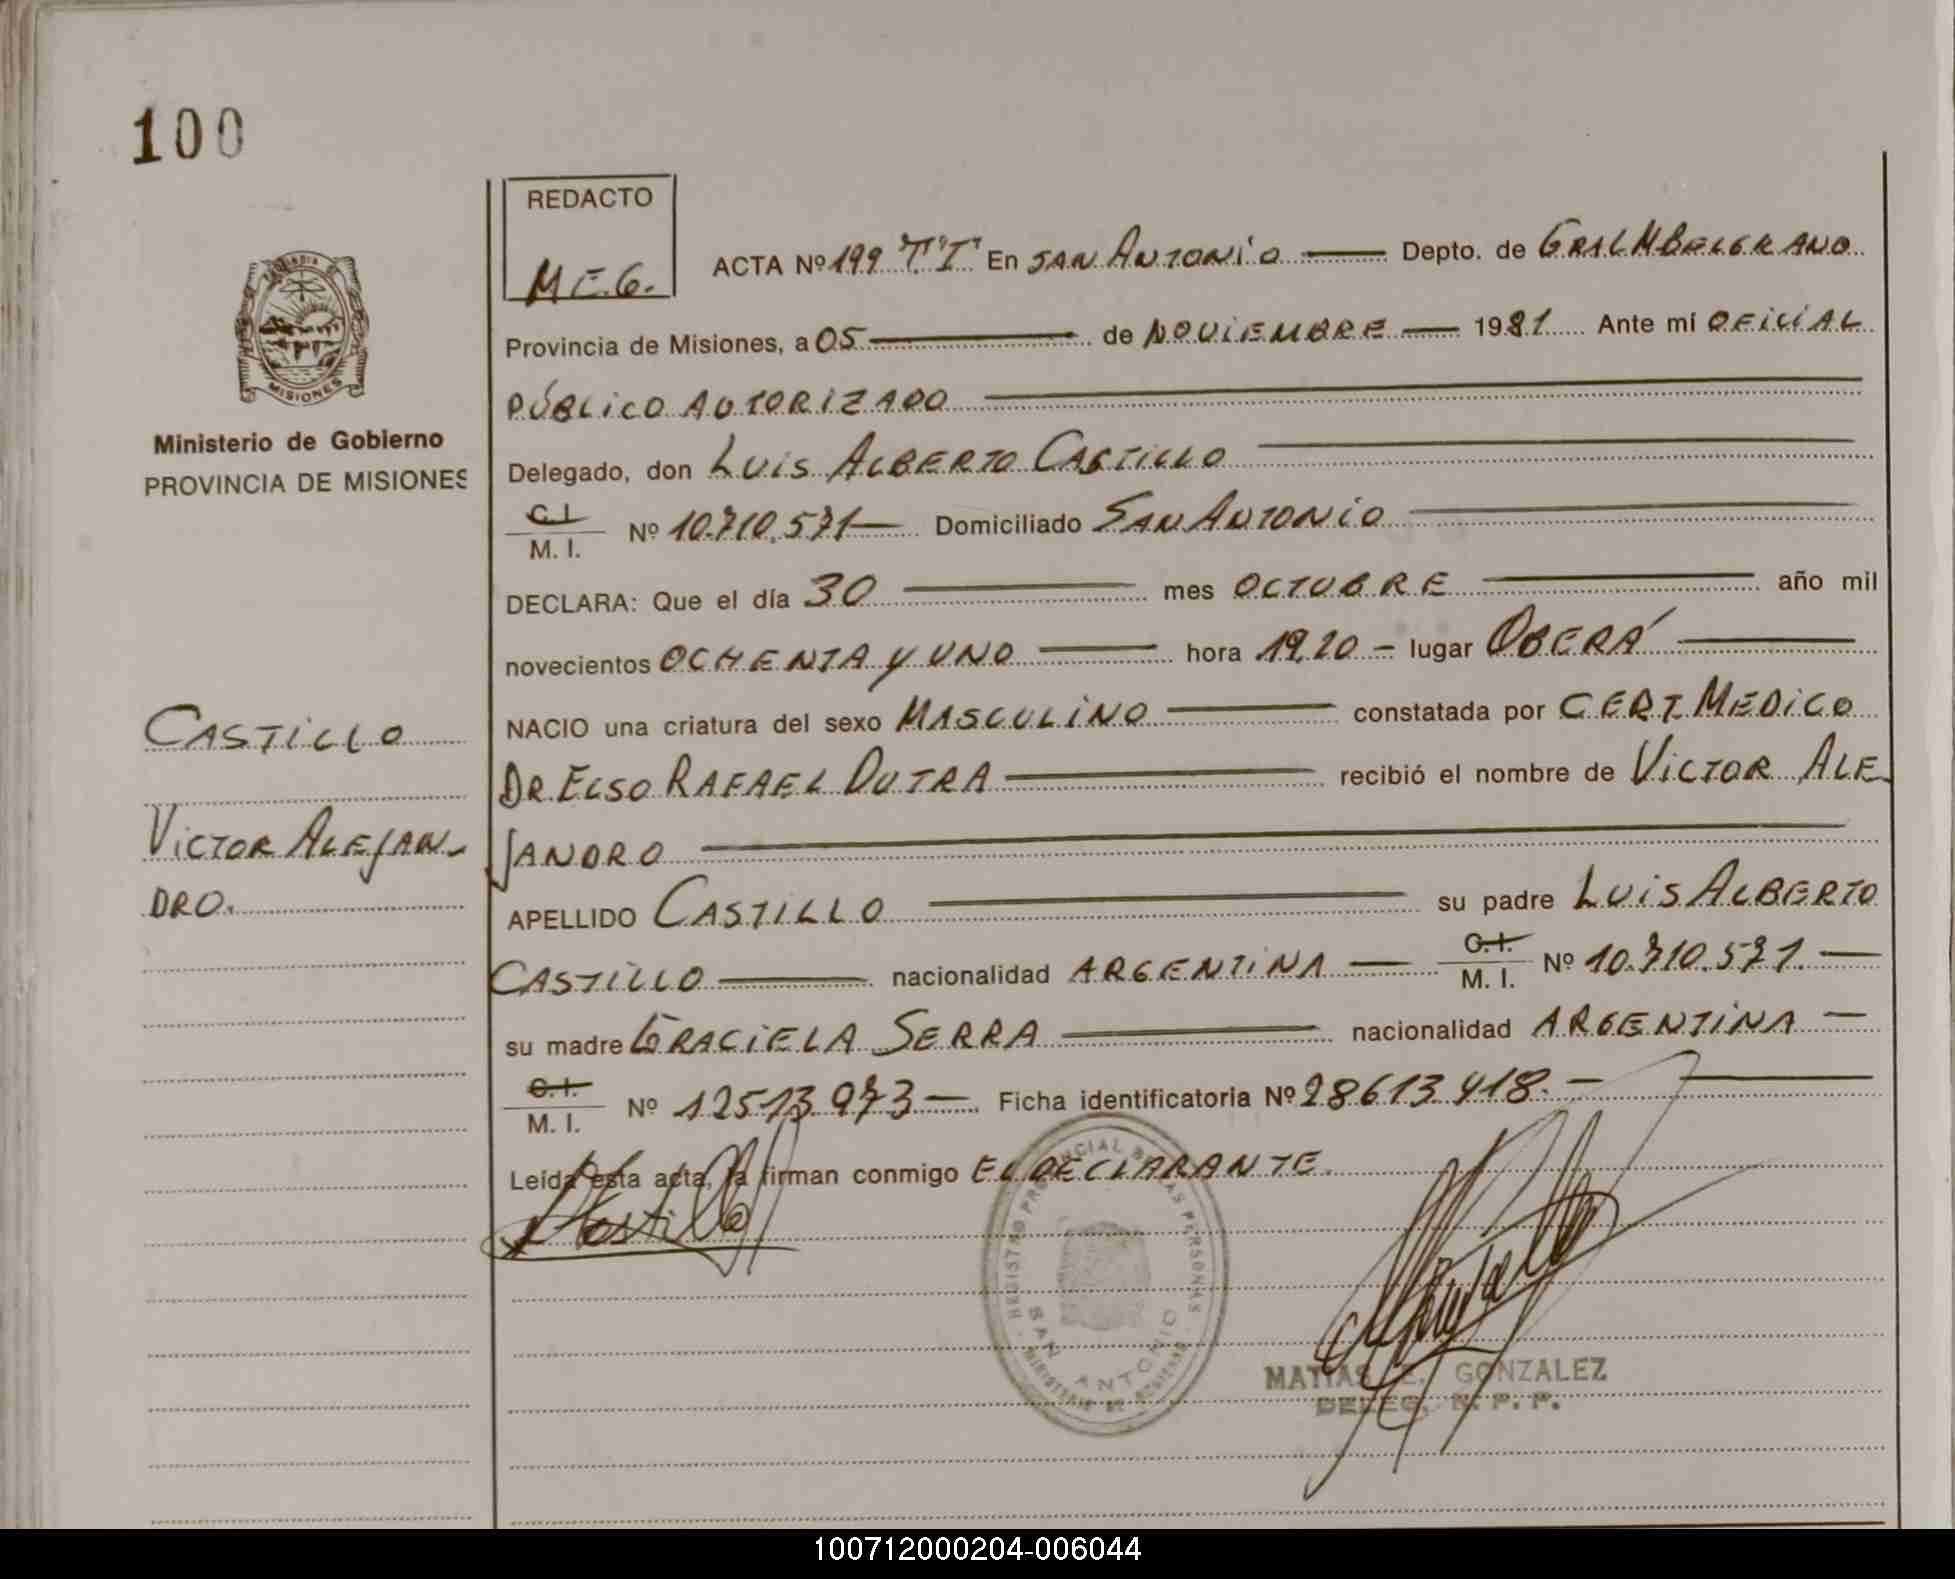 100
REDACTO
M.E.G.
ACTA Nº 199 "T"I" En SAN ANTONIO Depto. de GRAL M BELGRANO
Provincia de Misiones, a 05 de NOVIEMBRE 1981 Ante mí OFICIAL
PÚBLICO AUTORIZADO
Delegado, don LUIS ALBERTO CASTILLO
C.I. / M. I. Nº 10.710.571 Domiciliado SAN ANTONIO
DECLARA: Que el día 30 mes OCTUBRE año mil
novecientos OCHENTA Y UNO hora 19,20 - lugar OBERÁ
NACIO una criatura del sexo MASCULINO constatada por CERT. MEDICO
DR. ELSO RAFAEL DUTRA recibió el nombre de VICTOR ALE-
JANDRO
APELLIDO CASTILLO su padre LUIS ALBERTO
CASTILLO nacionalidad ARGENTINA C.I. / M. I. Nº 10.710.571.
su madre GRACIELA SERRA nacionalidad ARGENTINA
C.I. / M. I. Nº 12513.973 Ficha identificatoria Nº 28613.418.
Leída esta acta, la firman conmigo EL DECLARANTE.
MISIONES
Ministerio de Gobierno
PROVINCIA DE MISIONES
CASTILLO
VICTOR ALEJAN-
DRO.
REGISTRO PROVINCIAL DE LAS PERSONAS
SAN ANTONIO
MATIAS E. GONZALEZ
DELEG. R. P. P.
100712000204-006044